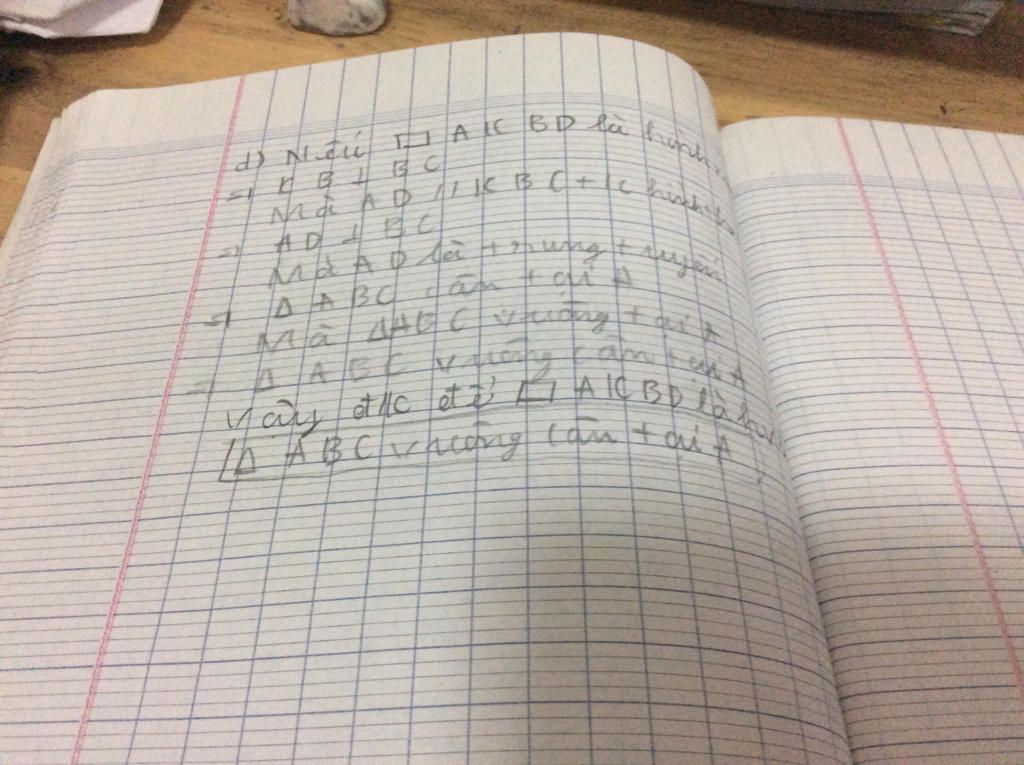 d) Nếu ▭ AKBD là hình
=> KB ⊥ BC
Mà AD // KBC + K hình
=> AD ⊥ BC
Mà AD là trung tuyến
=> Δ ABC cân tại A
Mà ΔABC vuông tại A
=> Δ ABC vuông cân tại A
Vậy đ/k để ▭ AKBD là
Δ ABC vuông cân tại A